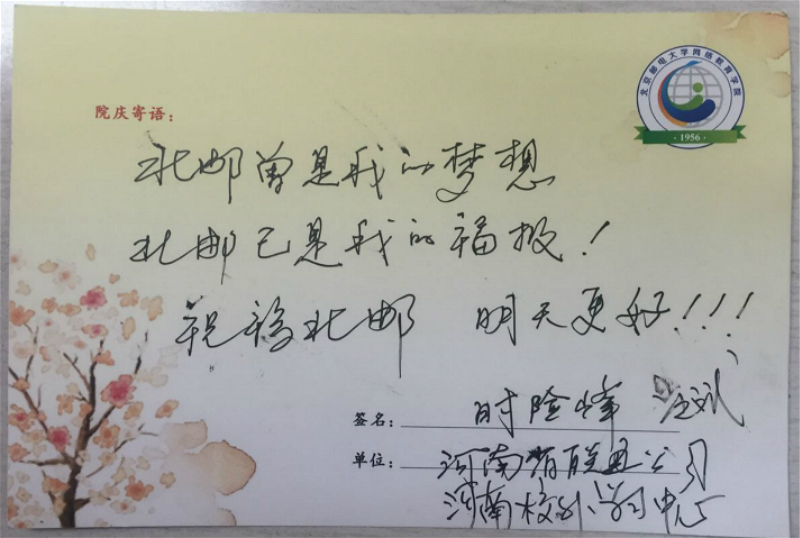 北京邮电大学网络教育学院
·1956·
院庆寄语：
北邮曾是我的梦想
北邮已是我的福报！
祝福北邮 明天更好!!!
签名： 时险峰
单位： 河南省联通公司
河南校外学习中心